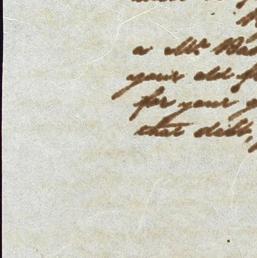 a Mr. Ba
your old f
for your g
that debt,